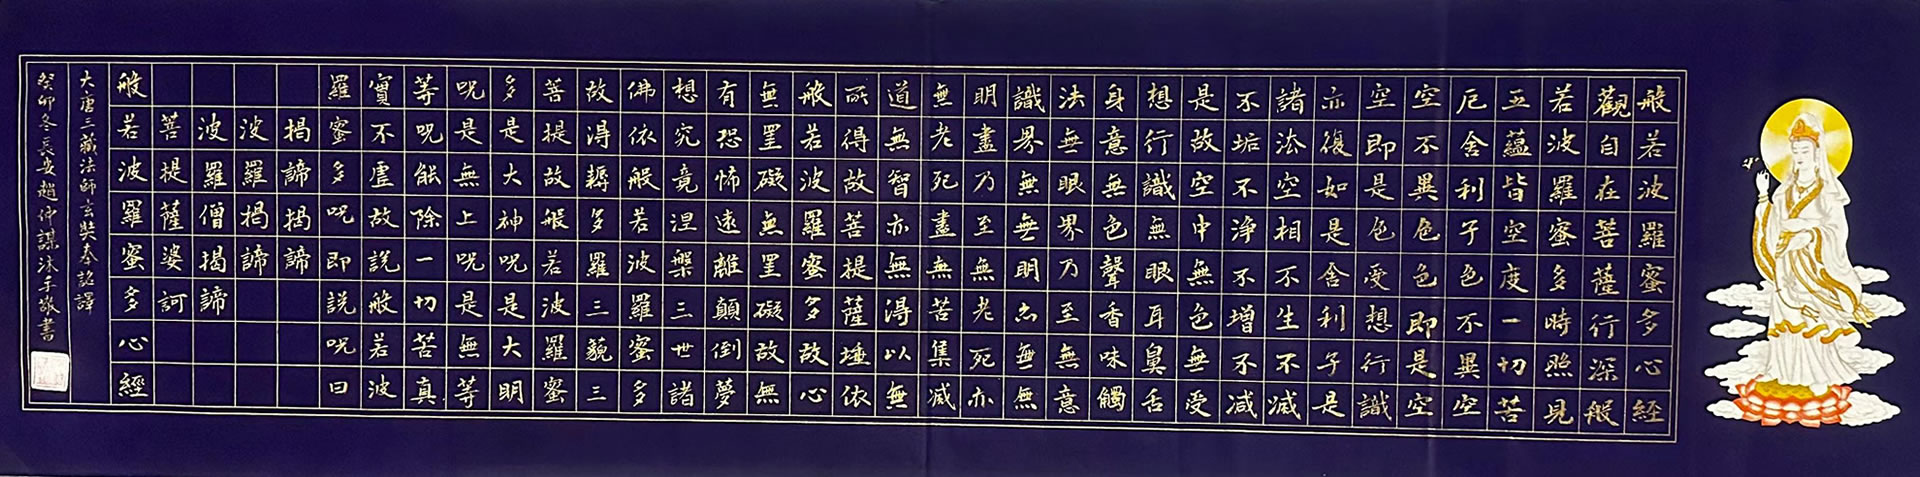 般若波羅蜜多心經
觀自在菩薩行深般
若波羅蜜多時照見
五蘊皆空度一切苦
厄舍利子色不異空
空不異色色即是空
空即是色受想行識
亦復如是舍利子是
諸法空相不生不滅
不垢不淨不增不減
是故空中無色無受
想行識無眼耳鼻舌
身意無色聲香味觸
法無眼界乃至無意
識界無無明亦無無
明盡乃至無老死亦
無老死盡無苦集滅
道無智亦無得以無
所得故菩提薩埵依
般若波羅蜜多故心
無罣礙無罣礙故無
有恐怖遠離顛倒夢
想究竟涅槃三世諸
佛依般若波羅蜜多
故得耨多羅三藐三
菩提故般若波羅蜜
多是大神呪是大明
呪是無上呪是無等
等呪能除一切苦真
實不虛故說般若波
羅蜜多呪即說呪曰
揭諦揭諦
波羅揭諦
波羅僧揭諦
菩提薩婆訶
般若波羅蜜多心經
大唐三藏法師玄奘奉詔譯
癸卯冬長安趙仲謀沐手敬書